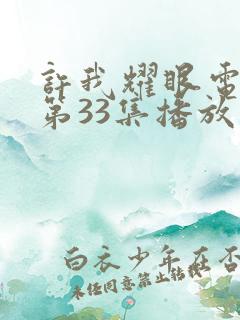 許我耀眼電
第33集播放
白衣少年在否
未经同意禁止转载